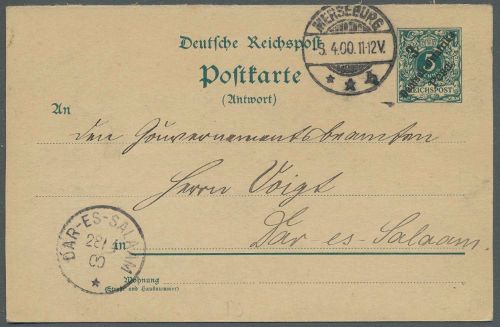 MERSEBURG
5.4.00.11-12V.
Deutsche Reichspost
Postkarte
(Antwort)
5
REICHSPOST
An
den Gouvernementsbeamten
Herrn Voigt
Dar-es-Salaam
DAR-ES-SALAAM
28
00
in
Wohnung
(Straße und Hausnummer)